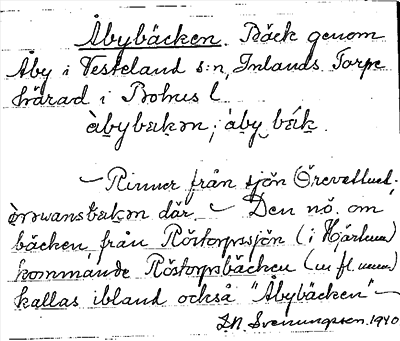 Åbybäcken. Bäck genom
Åby i Vesteland s:n, Inlands Torpe
härad i Bohus l
àbybɛkən; àby bɛ́k.
— Rinner från sjön Örevattnet,
där. — Den nö. om
bäcken, från Röstorpssjön (i Hjärtum)
kommande Röstorpsbäcken (m fl. namn)
kallas ibland också "Åbybäcken" —
Sveningsson. 1940